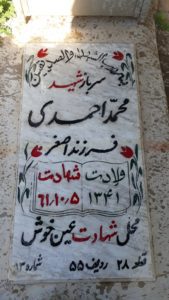 سرباز شهید
محمد احمدی
فرزند اصغر
ولادت شهادت
۱۳۴۱ ۶۱،۱۰،۵
محل شهادت عین خوش
قطعه ۲۸ ردیف ۵۵ شماره ۱۳